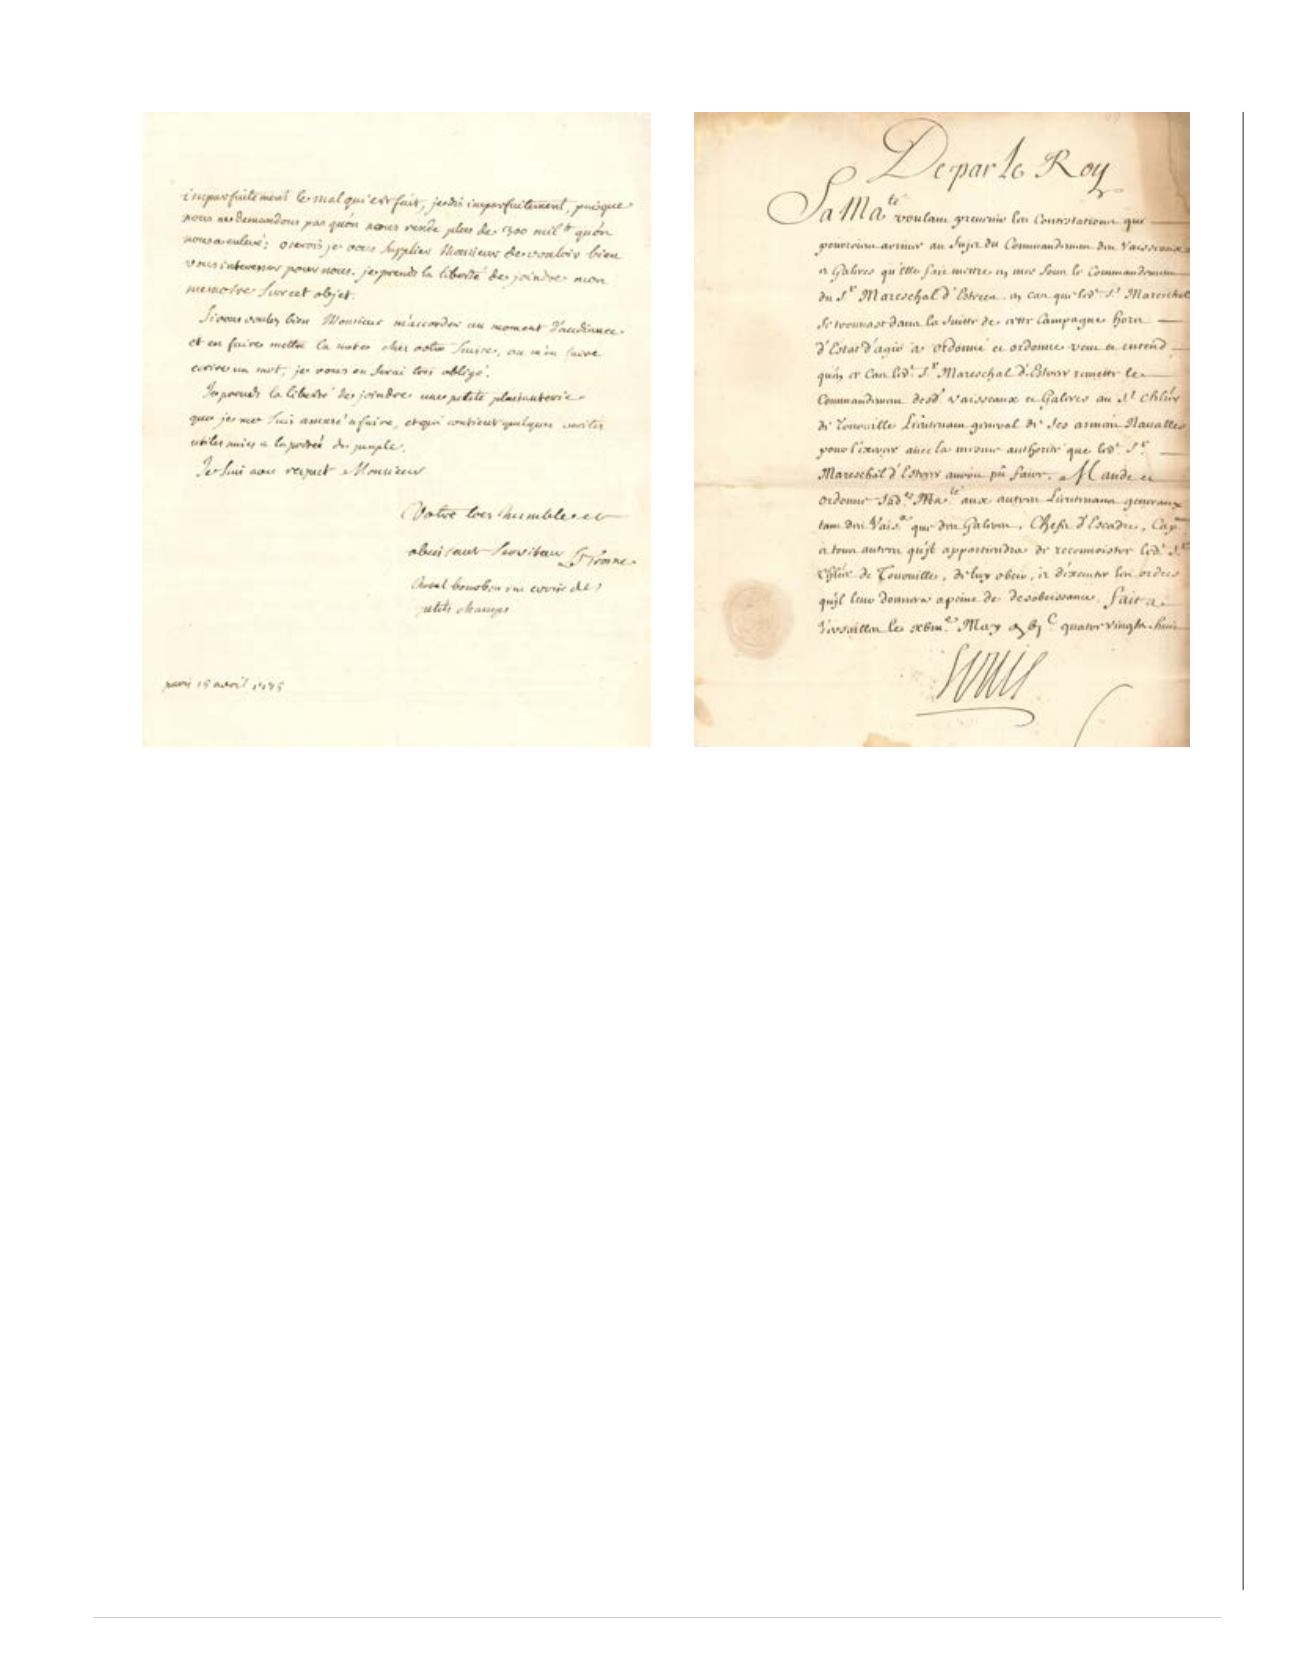 imparfaitement le mal qui est fait, je dis imparfaitement, puisque
nous ne demandons pas qu'on nous rende plus de 1300 mil ᵗᵗ qu'on
nous a enlevé; oserois je vous supplier Monsieur de vouloir bien
vous interesser pour nous. je prends la liberté de joindre mon
memoire sur cet objet.
Si vous voulez bien Monsieur m'accorder un moment d'audiance
et en faire mettre la note chez votre Suisse, ou m'en faire
ecrire un mot, je vous en serai tres obligé.
Je prends la liberté de joindre une petite plaisanterie
que je me suis amusé a faire, et qui contient quelques verités
utiles mises a la portée du peuple.
Je suis avec respect Monsieur
Votre tres humble et
obeissant Serviteur
hotel bourbon rue croix de
petits champs
paris 15 avril
De par le Roy
Sa Maᵗᵉ voulant prevenir les Contestations que
pourroient arriver au Sujet du Commandement des Vaisseaux
et Galeres qu'Elle fait mettre en mer sous le Commandement
du Sʳ Mareschal d'Estrées, en cas que ledᵗ Sʳ Mareschal
se trouvast dans la Suitte de cette Campagne hors
d'Estat d'agir a ordonné et ordonne veut et entend
qu'en ce Cas ledᵗ Sʳ Mareschal d'Estrées remette le
Commandement desdᵗ Vaisseaux et Galeres au Sʳ Chlier
de Tourville Lieutenant general de ses armées Navalles
pour l'exercer avec la mesme authorité que ledᵗ Sʳ
Mareschal d'Estrées auroit pû faire. Mande et
ordonne Sadᵗᵉ Maᵗᵉ aux autres Lieutenans generaux
tant des Vaisˣ que des Galeres, Chefs d'Escadre, Capⁿᵉˢ
et tous autres qu'jl appartiendra de reconnoistre ledᵗ Sʳ
Chlier de Tourville, de luy obeir, et d'executer les ordres
qu'jl leur donnera a peine de desobeissance. fait a
Versailles le May quatre vingts huit
Louis